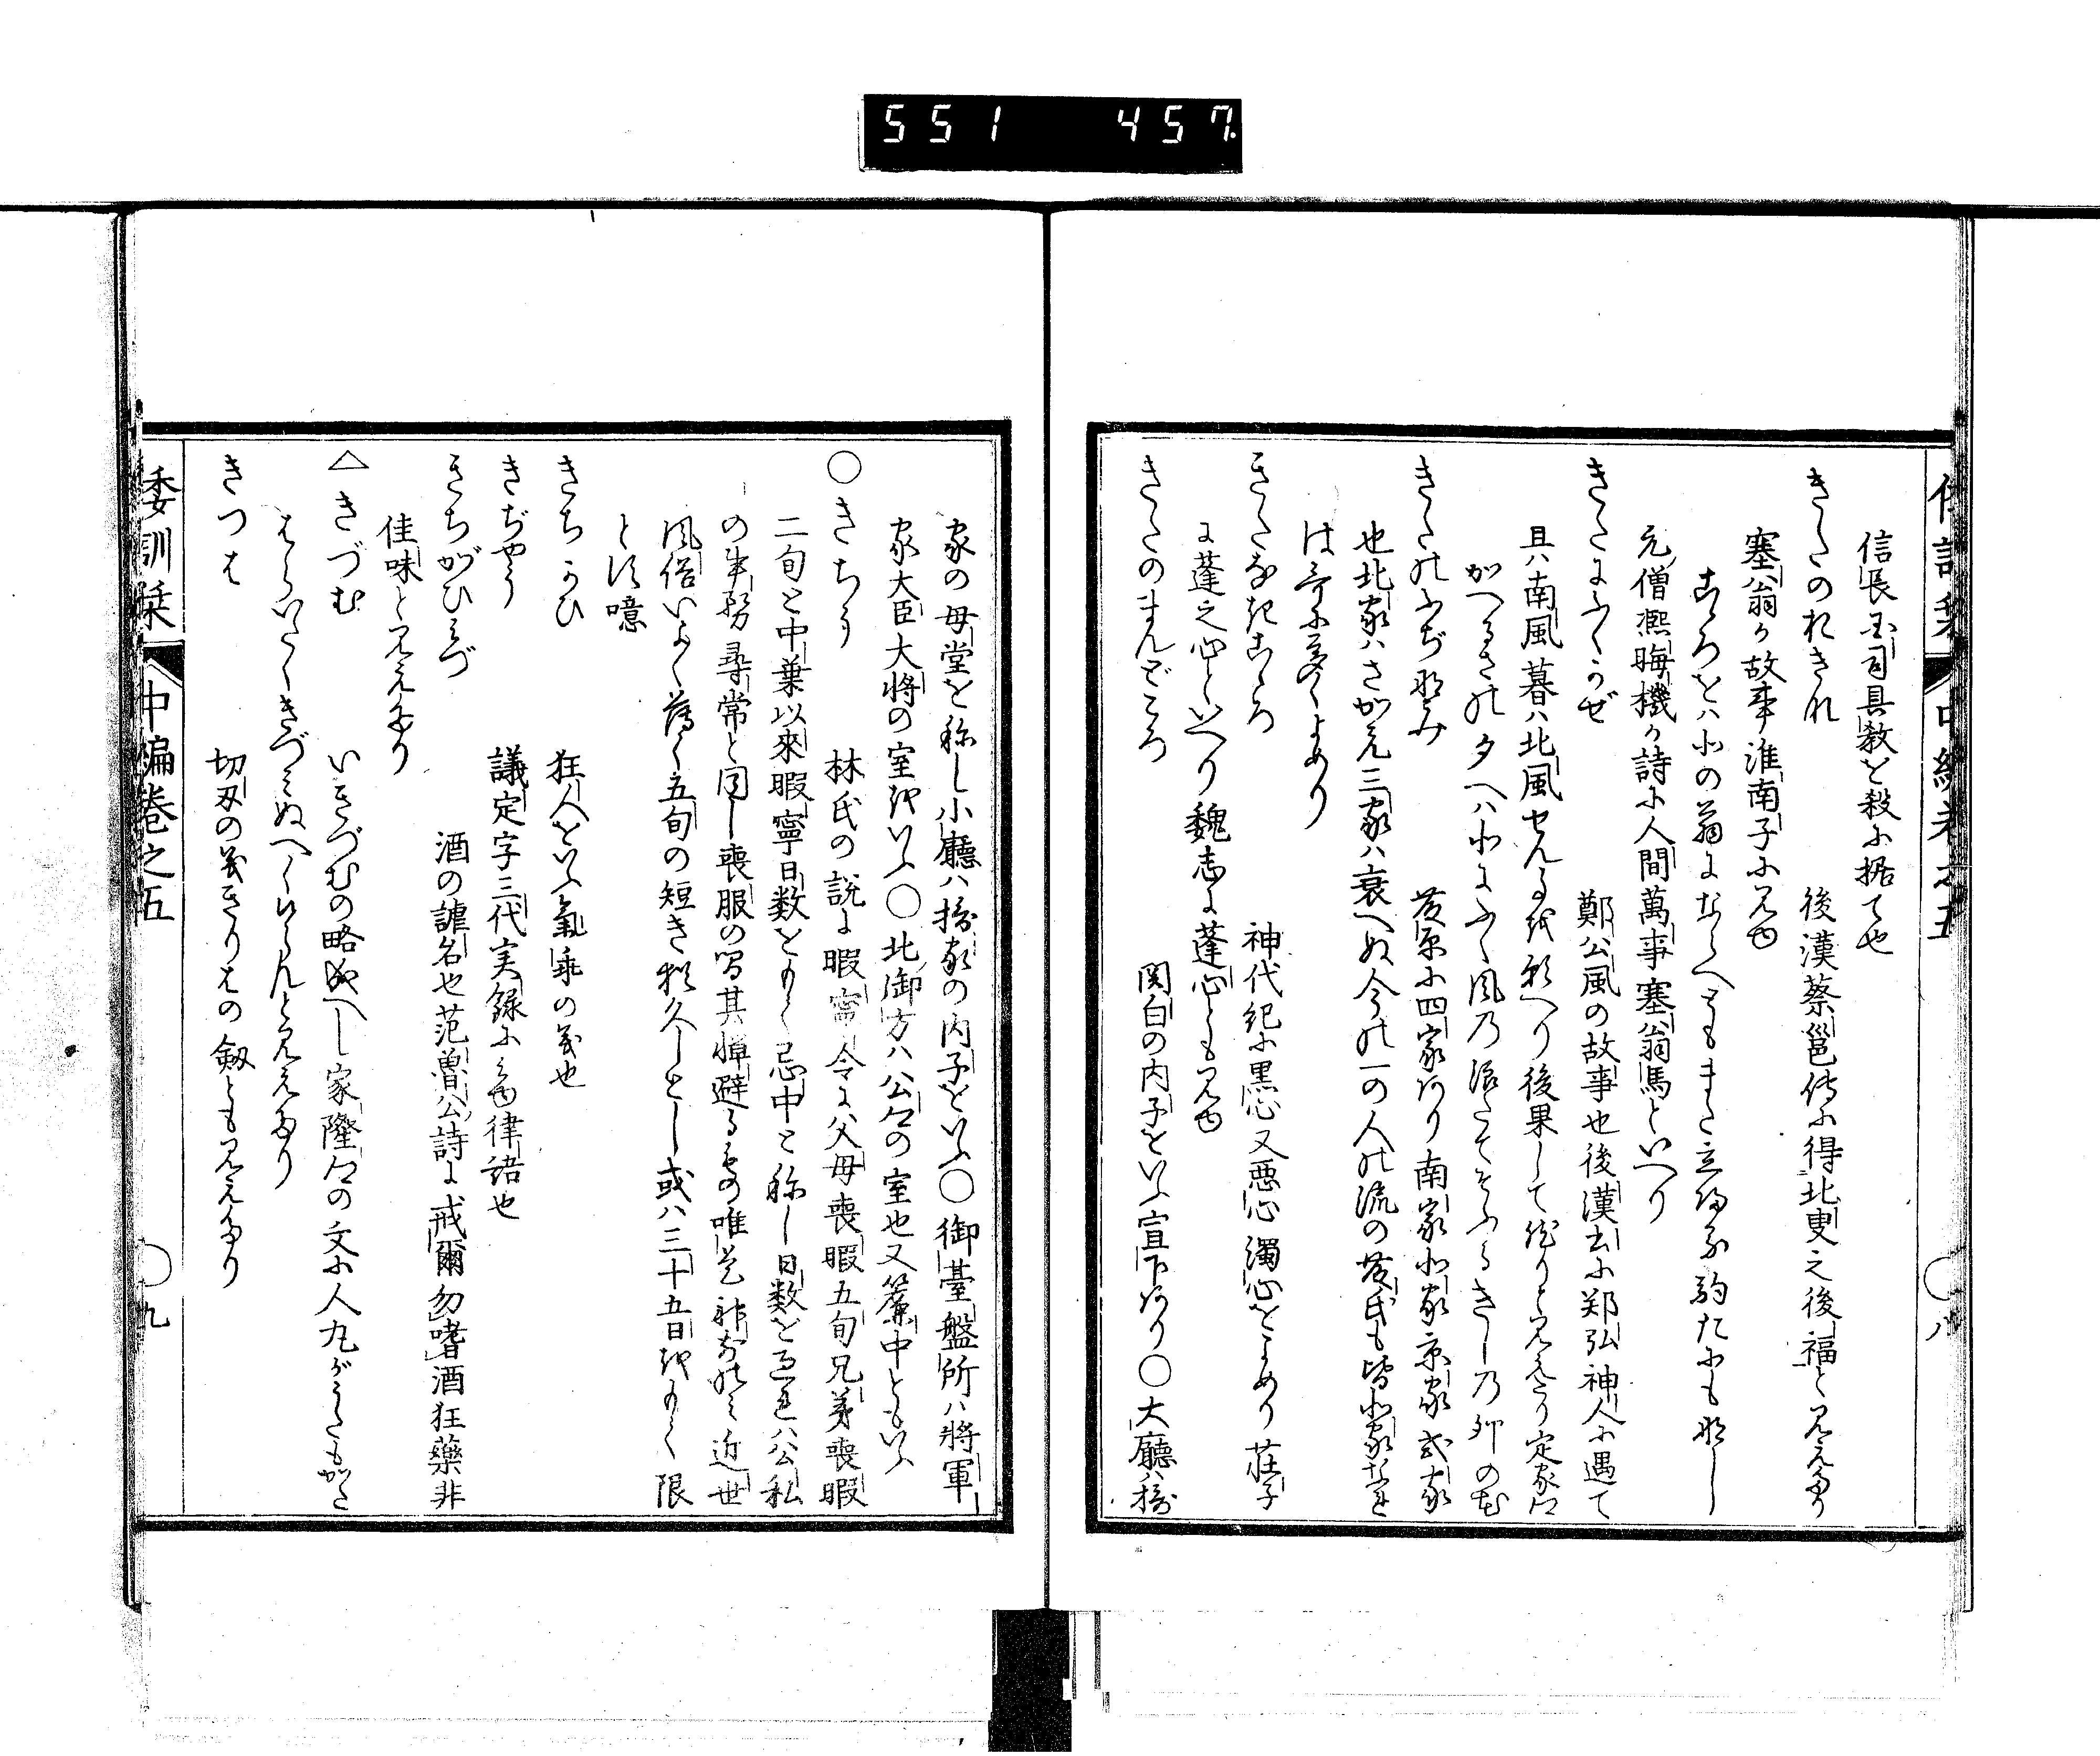 551 457
信長玉司具教を殺に據て也
きたのおきれ 後漢蔡邕傳に得北叟之後福と見えたり
塞翁か故事淮南子に見ゆ
こゝろをハ北の翁にならへともまた立帰る駒たにもなし
元僧熙晦機か詩に人間萬事塞翁馬といへり
きたにふくかぜ 鄭公風の故事也後漢書に郑弘神人に遇て
旦ハ南風暮ハ北風せんるを願へり後果して然りと見えたり定家卿
かへるさの夕へハ北にふく風の浪たてそふるきしの卯の花
きたのふぢなみ 藤原に四家あり南家北家京家式家
也北家ハさかえ三家ハ衰へぬ今の一の人の流の藤氏も皆北家なれ
は哥に多くよめり
きたなきこゝろ 神代紀に黒心又悪心濁心をよめり荘子
に蓬之心といへり魏志に蓬心とも見ゆ
きたのまんどころ 関白の内子をいふ宣下あり〇大廳ハ摂
家の母堂を称し小廳ハ摂家の内子をいふ〇御臺盤所ハ將軍
家大臣大將の室をいふ〇北御方ハ公卿の室也又簾中ともいふ
〇きちう 林氏の説に暇寧令に父母喪暇五旬兄弟喪暇
二旬と中葉以來暇寧日数をもて忌中と称し日数を過れハ公私
の事務尋常と同し喪服の間其憚避る者唯是神事のミ近世
風俗いよ〱薄く五旬の短き猶久しとし或ハ三十五日をもて限
とす噫
きちかひ 狂人をいふ氣乖の義也
きぢやう 議定字三代実録にミゆ律語也
きちがひミづ 酒の謔名也范魯公詩に戒爾勿嗜酒狂藥非
佳味と見えたり
△きづむ いきづむの略成へし家隆卿の文に人丸がうたもがた
はらいたくきづミぬへくけられんと見えたり
きつは 切刄の義きりはの劔とも見えたり
倭訓栞 中編巻之五 〇九